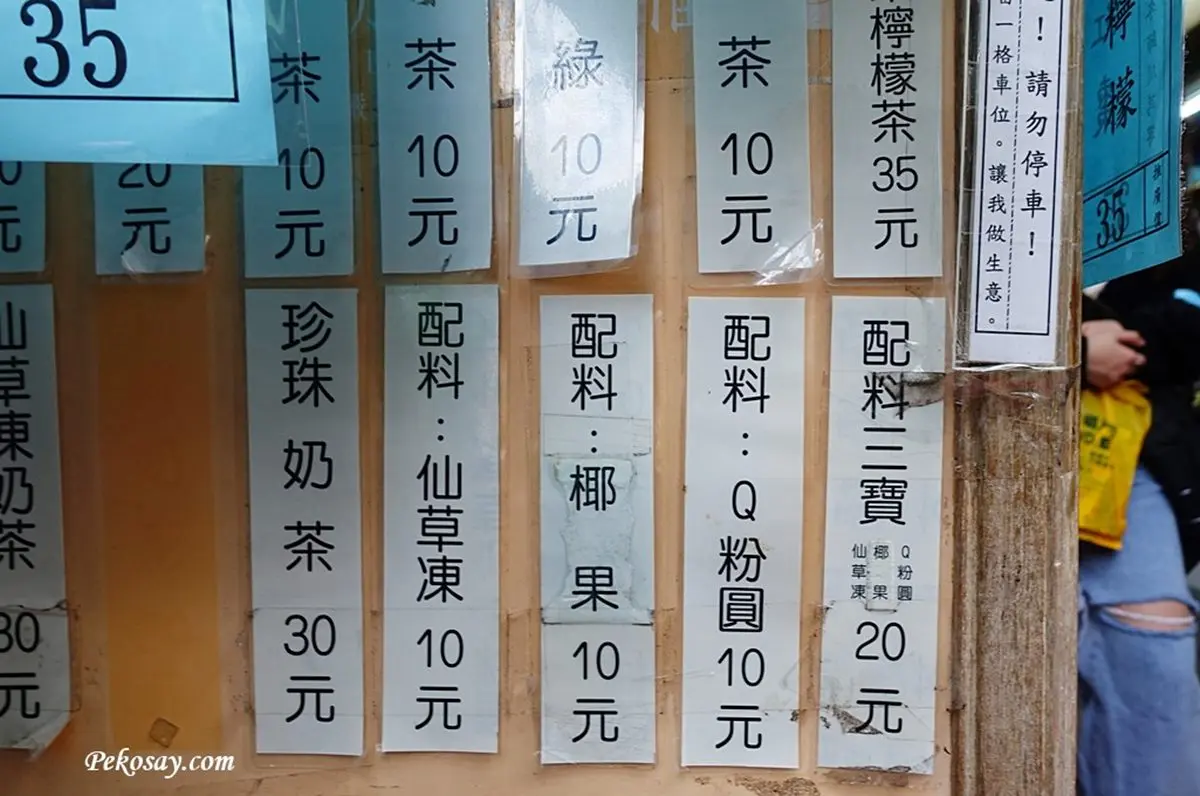 35
茶10元
茶10元
綠10元
茶10元
檸檬茶35元
！請勿停車！
一格車位。讓我做生意。
檸檬
35
20元
元
仙草凍奶茶30元
珍珠奶茶30元
配料：仙草凍10元
配料：椰果10元
配料：Q粉圓10元
配料三寶
Q粉圓
椰果
仙草凍
20元
Pekosay.com